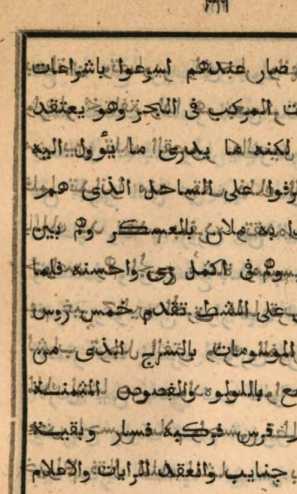 صار عندهم اسرعوا باشراعات
المركب فى البحر وهو يعتقد
لكنه ما يدرى ما يؤول اليه
على الساحل الذى هم
به ملان بالعسكر وهم بين
فى اكمل زى واحسنه فلما
على الشط تقدم خمس روس
بالتفرج الذى من
باللولو والفصوص المثمنه
فرس فركبه فسار وبقيه
جنايب وانعقد الرايات والاعلام